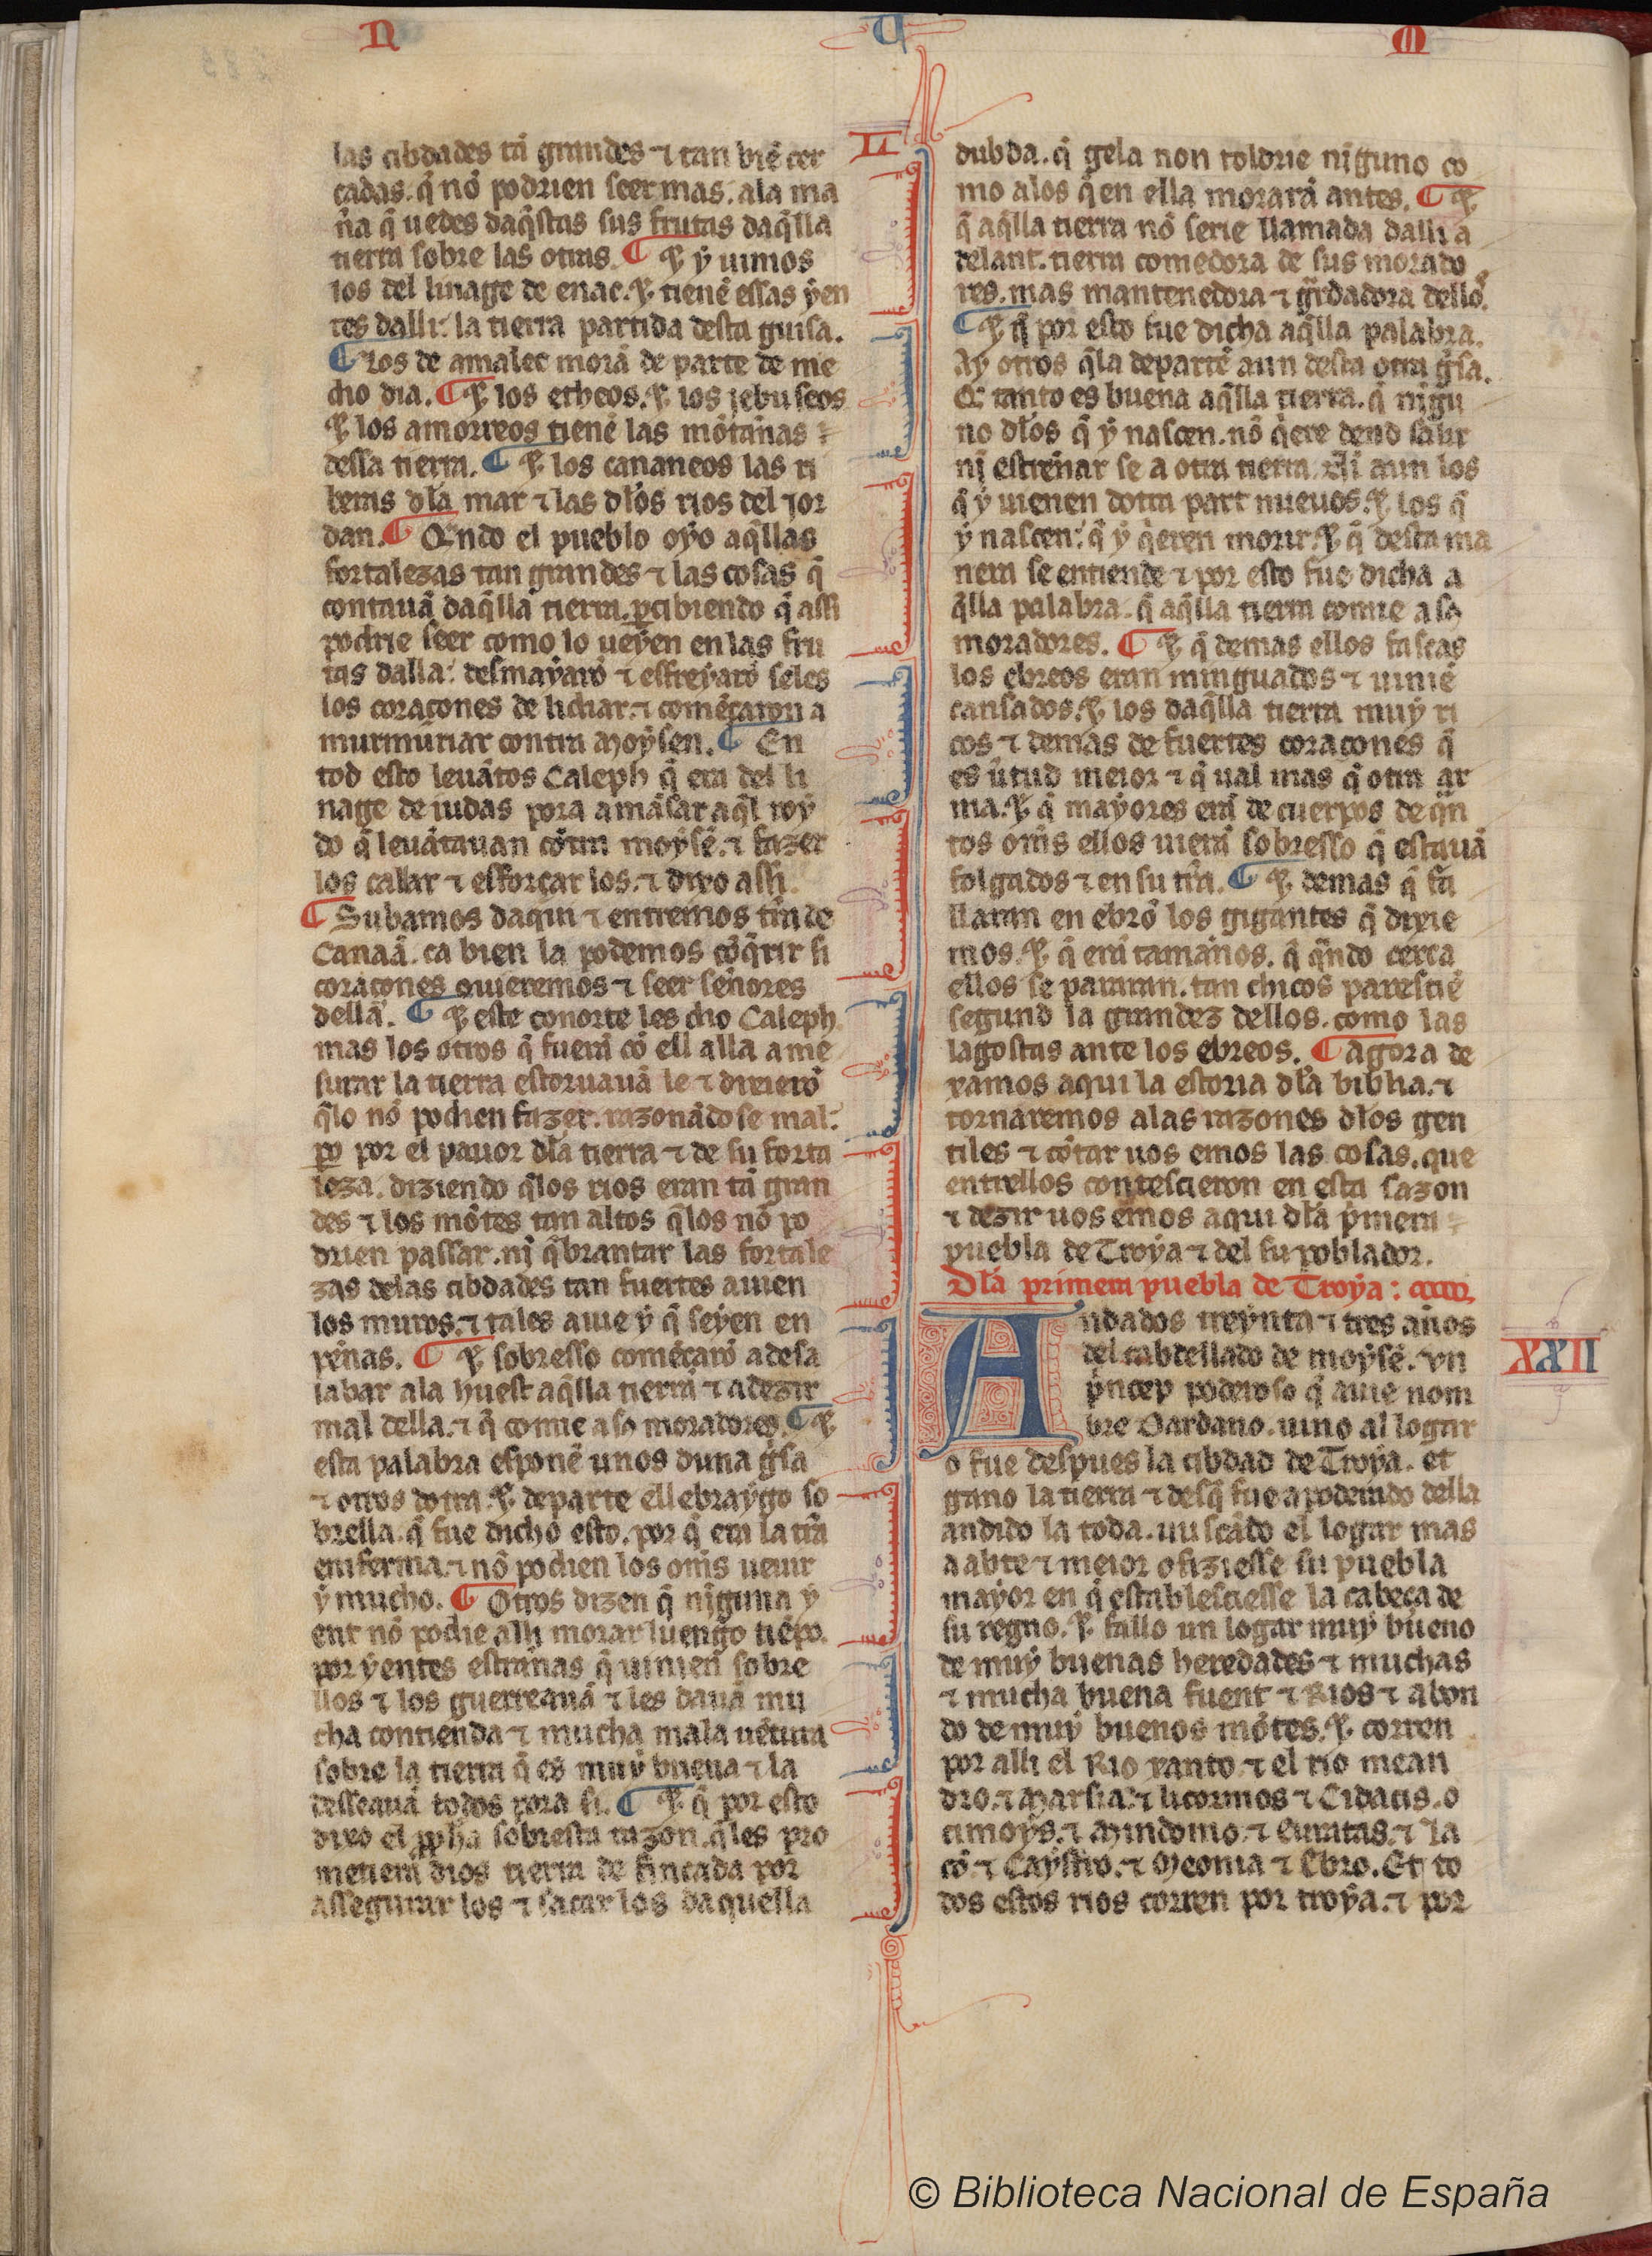 N U M
LI
las cibdades tã grandes ⁊ tan biẽ cer
cadas. q̃ nõ podrien seer mas. ala ma
ña q̃ uedes daq̃stas sus frutas daq̃lla
tierra sobre las otras. ¶ ⁊ ỹ uimos
los del linage de enac. ⁊ tienẽ essas ỹen
tes dalli: la tierra partida desta guisa.
¶ los de amalec morã de parte de me
dio dia. ¶ ⁊ los etheos. ⁊ los jebuseos
⁊ los amorreos tienẽ las mõtañas
dessa tierra. ¶ ⁊ los cananeos las ri
beras dła mar ⁊ las dłos rios del Jor
dan. ¶ Qñdo el pueblo oỹo aq̃llas
fortalezas tan grandes ⁊ las cosas q̃
contauã daq̃lla tierra. ꝑcibiendo q̃ assi
podrie seer como lo ueỹen en las fru
tas dalla: desmaỹarõ ⁊ esfreỹarõ seles
los coraçones de lidiar. ⁊ comẽçaron a
murmuriar contra Moỹsen. ¶ En
tod esto leuãtos Caleph q̃ era del li
nage de iudas pora amãsar aq̃l roỹ
do q̃ leuãtauan cõtra moỹsẽ. ⁊ fazer
los callar ⁊ esforçar los. ⁊ dixo assi.
¶ Subamos daq̃nt ⁊ entremos tr̃a de
Canaã. ca bien la podemos cõq̃rir si
coraçones ouieremos ⁊ seer señores
della. ¶ ⁊ este conorte les dio Caleph.
mas los otros q̃ fuerã cõ ell alla a me
surar la tierra estoruauã le ⁊ dixierõ
q̃lo nõ podien fazer. razonãdo se mal:
ꝑo por el pauor dła tierra ⁊ de su forta
leza. diziendo q̃los rios eran tã gran
des ⁊ los mõtes tan altos q̃los nõ po
drien passar. nj q̃brantar las fortale
zas delas cibdades tan fuertes auien
los muros. ⁊ tales auie ỹ q̃ seỹen en
peñas. ¶ ⁊ sobresso comẽçarõ adesa
labar ala huest aq̃lla tierra ⁊ a dezir
mal della. ⁊ q̃ comie a sos moradores. ¶ ⁊
esta palabra esponẽ unos duna g̃sa
⁊ otros dotra. ⁊ departe ell ebraỹgo so
brella. q̃ fue dicho esto. por q̃ era la tr̃a
enferma. ⁊ nõ podien los om̃s ueuir
ỹ mucho. ¶ Otros dizen q̃ nj̃guna ỹ
ent nõ podie alli morar luengo tiẽpo.
por ỹentes estranas q̃ uinien sobre
llos ⁊ los guerreauã ⁊ les dauã mu
cha contienda ⁊ mucha mala uẽtura
sobre la tierra q̃ es muỹ buena ⁊ la
desseauã todos pora si. ¶ ⁊ q̃ por esto
dixo el ꝓpha sobresta razon. q̃les pro
metiera dios tierra de fincada por
assegurar los ⁊ sacar los daquella
dubda. q̃ gela non toldrie nĩguno co
mo alos q̃ en ella morarã antes. ¶ ⁊
q̃ aq̃lla tierra nõ serie llamada dalli a
delant. tierra comedora de sus morado
res. mas mantenedora ⁊ gr̃dadora dellos.
¶ ⁊ q̃ por esto fue dicha aq̃lla palabra.
Aỹ otros q̃la departẽ aun desta otra g̃sa.
Q̃ tanto es buena aq̃lla tierra. q̃ nĩgu
no dłos q̃ ỹ nascen. nõ q̃ere dend salir
nj estreñar se a otra tierra. Nĩ aun los
q̃ ỹ uienen dotra part nueuos. ⁊ los q̃
ỹ nascen: q̃ ỹ q̃eren morir. ⁊ q̃ desta ma
nera se entiende ⁊ por esto fue dicha a
q̃lla palabra. q̃ aq̃lla tierra comie a sos
moradores. ¶ ⁊ q̃ demas ellos fascas
los ebreos eran minguados ⁊ uiniẽ
cansados. ⁊ los daq̃lla tierra muỹ ri
cos ⁊ demas de fuertes coraçones q̃
es ũtud meior ⁊ q̃ ual mas q̃ otra ar
ma. ⁊ q̃ maỹores erã de cuerpos de q̃n
tos om̃s ellos uierã sobresso q̃ estauã
folgados ⁊ en su tr̃a. ¶ ⁊ demas q̃ fa
llaran en ebrõ los gigantes q̃ dixie
mos. ⁊ q̃ erã tamaños. q̃ q̃ndo cerca
ellos se pararan. tan chicos paresciẽ
segund la grandez dellos. como las
lagostas ante los ebreos. ¶ agora de
xamos aqui la estoria dła biblia. ⁊
tornaremos alas razones dłos gen
tiles ⁊ cõtar uos emos las cosas. que
entrellos contescieron en esta sazon
⁊ dezir uos emos aqui dła p̃mera
puebla de Troỹa ⁊ del su poblador.
Dła primera puebla de Troỹa:
XXXII
Andados treỹnta ⁊ tres años
del cabdellado de moỹsẽ. un
p̃ncep poderoso q̃ auie nom
bre Dardano. uino al logar
o fue despues la cibdad de Troỹa. et
gano la tierra ⁊ desq̃ fue apoderado della
andido la toda. buscãdo el logar mas
a abte ⁊ meior o fiziesse su puebla
maỹor en q̃ establesciesse la cabeça de
su regno. ⁊ fallo un logar muỹ bueno
de muỹ buenas heredades ⁊ muchas
⁊ mucha buena fuent ⁊ Rios ⁊ abon
do de muỹ buenos mõtes. ⁊ corren
por alli el Rio xanto. ⁊ el rio mean
dro. ⁊ Marsia. ⁊ licormos ⁊ Cidacis. o
cimoỹs. ⁊ Mindonio. ⁊ Eurotas. ⁊ la
cõ ⁊ Caỹstro. ⁊ Meonia ⁊ Ebro. Et to
dos estos rios corren por troỹa. ⁊ por
© Biblioteca Nacional de España